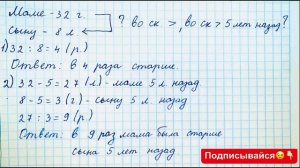 Маме - 32 г.
Сыну - 8 л
? во ск >, во ск > 5 лет назад?
1) 32 : 8 = 4 (р.)
Ответ: в 4 раза старше.
2) 32 - 5 = 27 (л) - маме 5 л назад
8 - 5 = 3 (г) - сыну 5 л назад
27 : 3 = 9 (р)
Ответ: в 9 раз мама была старше
сына 5 лет назад.
Подписывайся